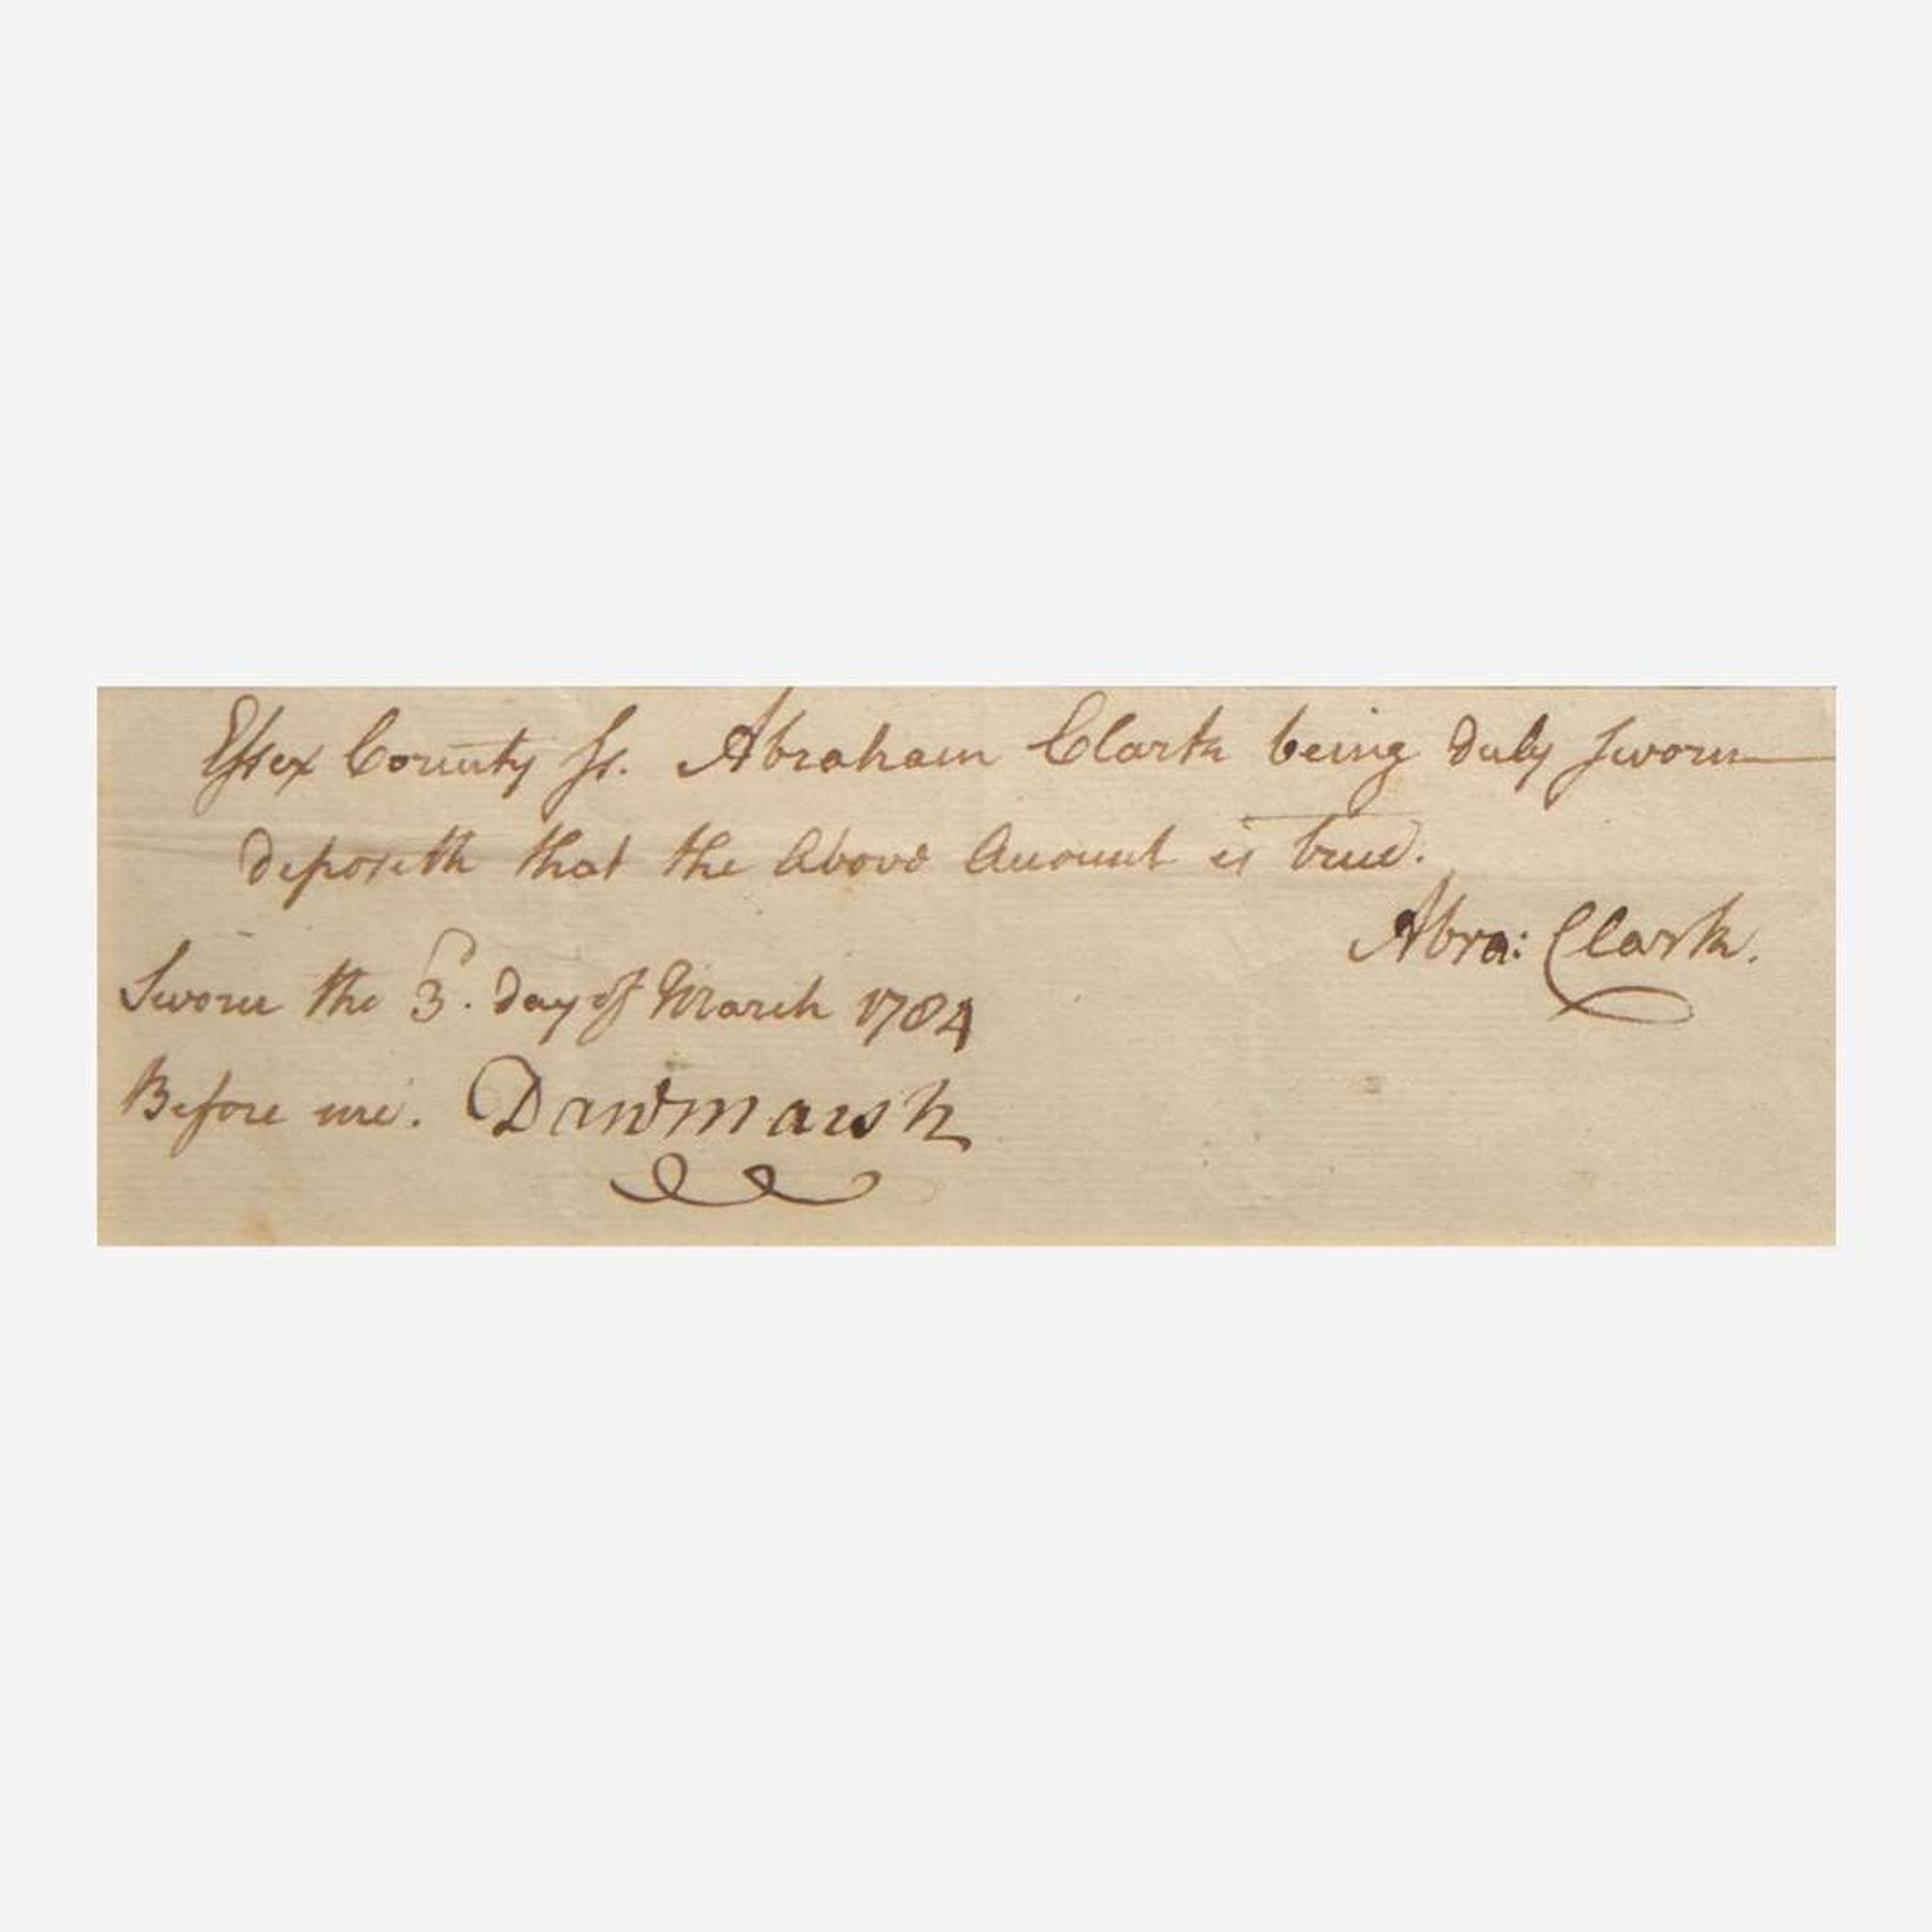 Essex County ss. Abraham Clark being duly sworn
deposeth that the above Account is true.
Abra: Clark.
Sworn the 3d. day of March 1784
Before me. Danl Marsh